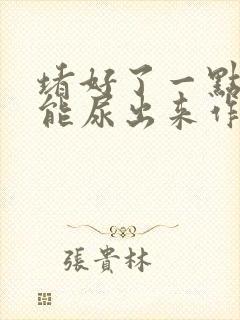 堵好了一點
能尿出来作
張貴林